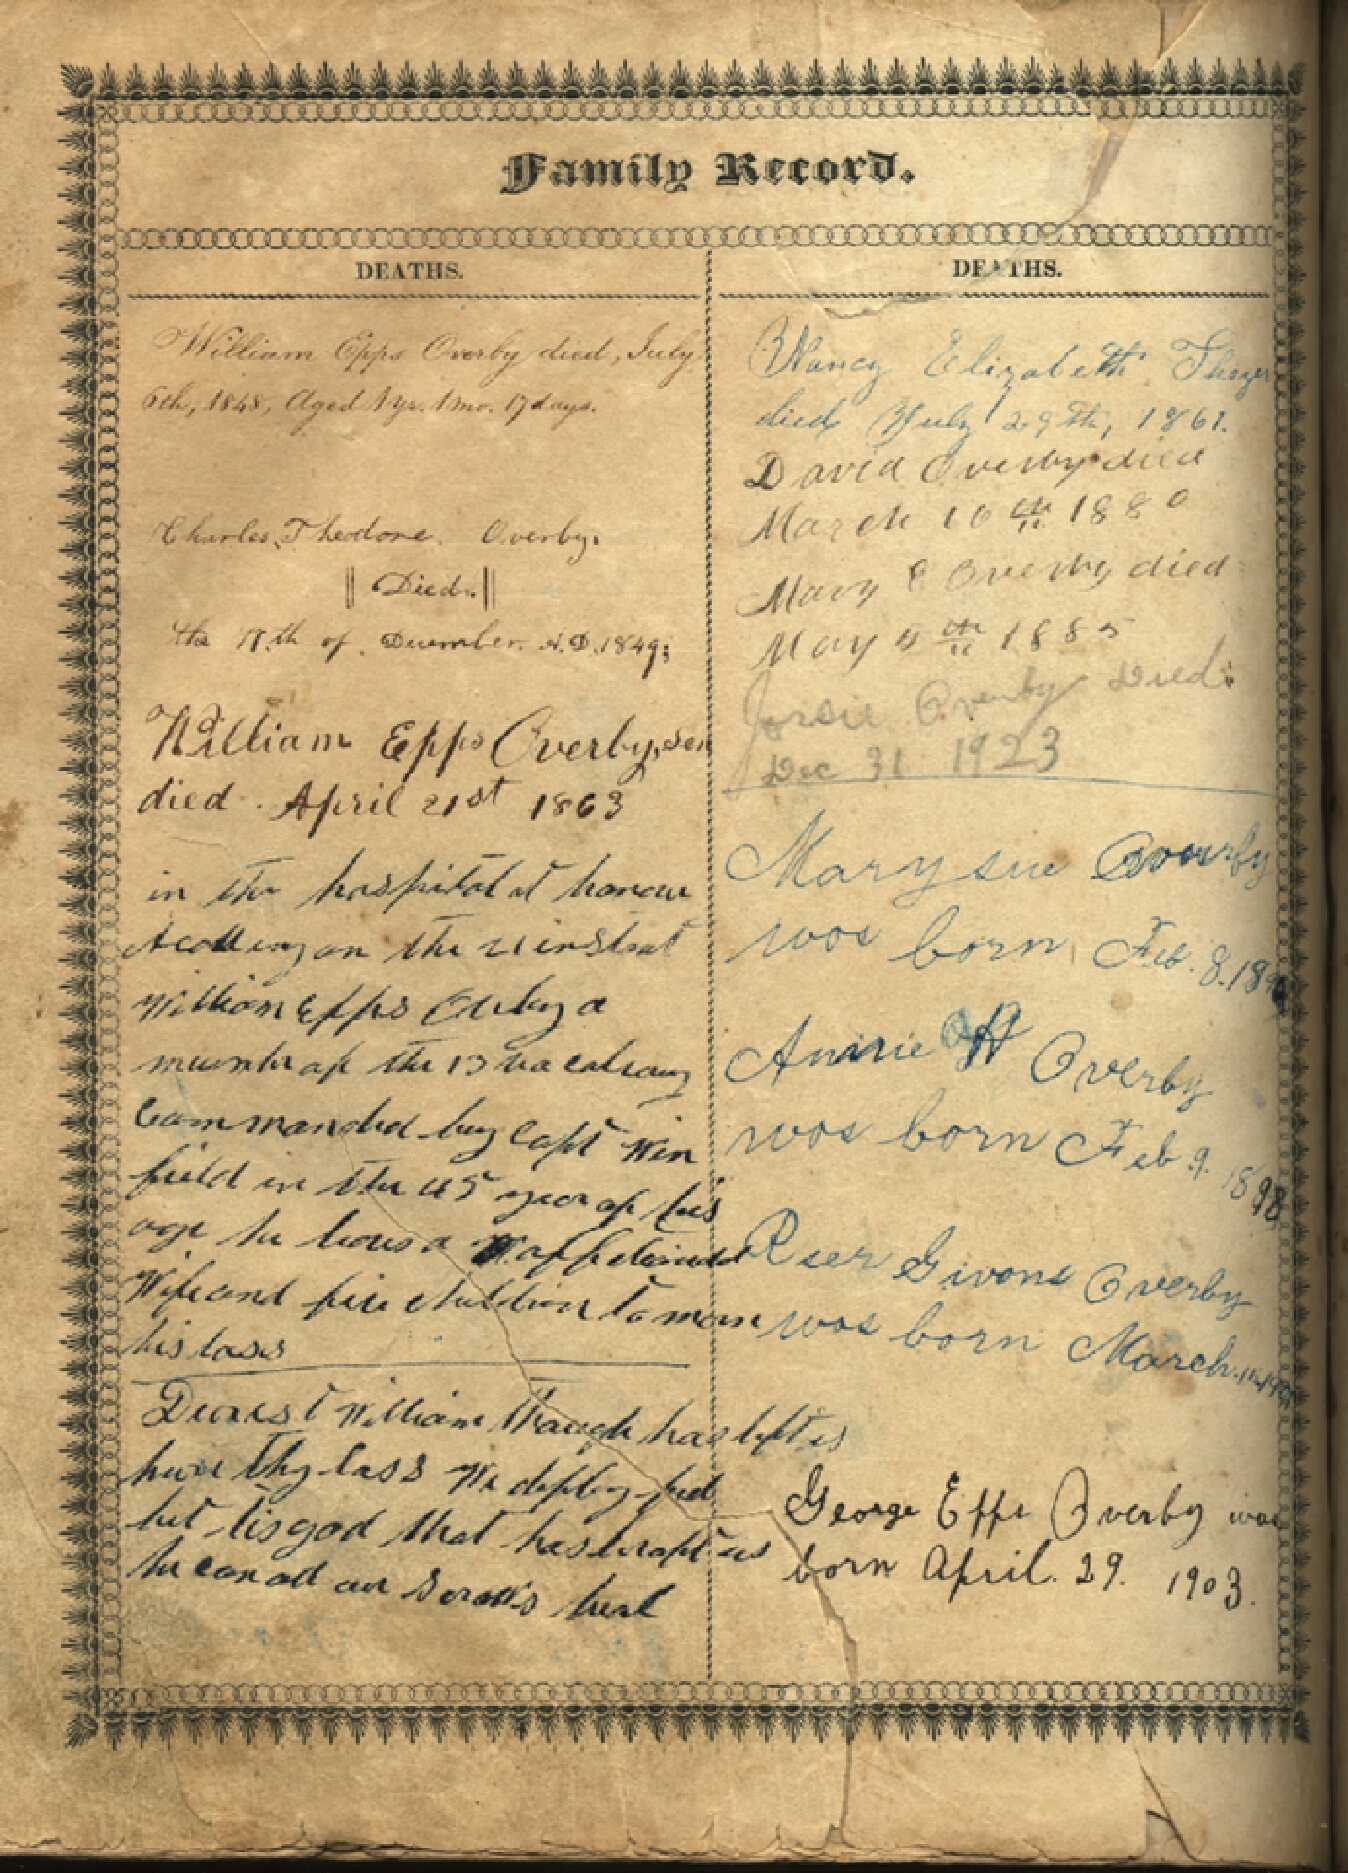 Family Record.
DEATHS.
William Epps Overby died, July
6th, 1848, Aged 1 yr. 1 mo. 17 days.
Charles Theodore Overby.
Died.
the 17.th of December. A.D. 1849;
William Epps Overby, sen
died April 21st 1863
in the hospital at hanour
Acadimy on the 21 instant
William Epps Overby a
member of the 13 va calvary
Commanded by Capt Win
field in the 45 year of his
age he leaves a affectionate
Wife and five children to morn
his loss
Dearest William though has left us
here thy loss We deeply feel
but tis god that has bereft us
he can all our Sorows heal
DEATHS.
Nancy Elizabeth
died July 29th, 1861.
David Overby died
March 10th 1880
Mary E Overby died
May 5th 1885
Josie Overby Died:
Dec 31 1923
Mary sue Overby
was born Feb. 8. 189
Annie W Overby
was born Feb 9. 1898
Roser Givons Overby
was born March
George Epps Overby was
born April. 29. 1903.